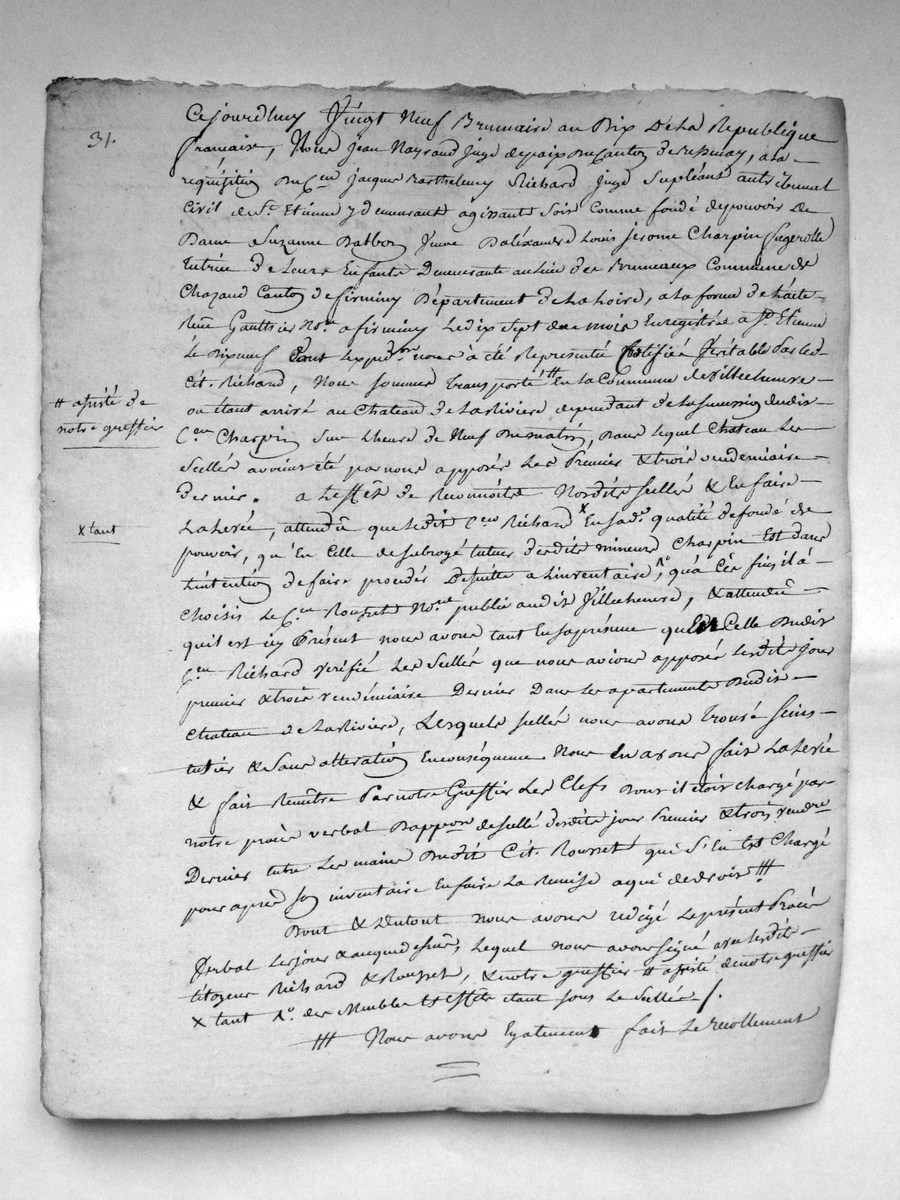 31.
Cejourdhuy Vingt Neuf Brumaire an Dix De la Republique
francaise, Nous Jean Nayrand Juge depaix du Canton de perreux, ala
requisition du Cen jacques Barthelemy Richard juge Supléant autribunal
Civil de St. Etienne y demeurant agissant Soit Comme fondé depouvoir De
Dame Suzanne Balbon Veuve Daléxandre Louis jerome Charpin feugerolle
tutrice de Leurs Enfants Demeurante au lieu des Bruneaux Commune de
Chazaud Canton de firminy Département de la Loire, ala forme de L'acte
Reçu Gaulthier Nore. afirminy Ledix Sept de ce mois Enregistrée a St. Etienne
Le Dixneuf Dont Lexpedon nous à été Représenté Certifiée Véritable Par led.
Cit. Richard, Nous Sommes transporté # En la Commune de Villecheneve
# assisté de
notre greffier
ou étant arrivé au Chateau de La Riviere dependant de La Succession dudit
Cen Charpin Sur Lheure de Neuf Du matin, Dans lequel Chateau Les
Scellés avoient été par nous apposés Les Premier & trois vendemiaire
dernier. a Leffet de Reconnoitre Nosdits Scellés & En faire
La Levée, attendu que ledit Cen Richard x En sad. qualité de fondé de
x tant
pouvoir, qu'En Celle de subrogé tuteur desdits mineurs Charpin Est dans
Lintention de faire proceder De suitte a Linventaire, qu'à Cet fins il à
Choisis Le Cen Rousset Nore public audit Villecheneve, & attendu
quil est icy Présent nous avons tant En sa présence que Celle Dudit
Cen Richard verifié Les Scellés que nous avions apposés lesdits jours
premier & trois vendémiaire Dernier Dans Les apartements Dudit
Chateau de La Riviere, Lesquels scellés nous avons trouvé Sains
entiers & Sans alteration Enconséquence Nous En avons fait La Levée
& fait Remettre Par notre Greffier Les Clefs Dont il étoit chargé par
notre procès verbal Dapposon de scellé desdits jours Premier & trois vendre
Dernier entre Les mains Dudit Cit. Rousset qui S'En Est Chargé
pour après Son inventaire En faire La Remise aqui de droit #
Dont & Du tout nous avons redigé Leprésent Procès
Verbal Les jour & an que dessus, Lequel nous avons Signé avec lesdits
Citoyens Richard & Rousset, & notre greffier # assisté de notre greffier
x tant des Meubles & Effets étant sous Le Scellés /.
# Nous avons Egalement fait Le recollement